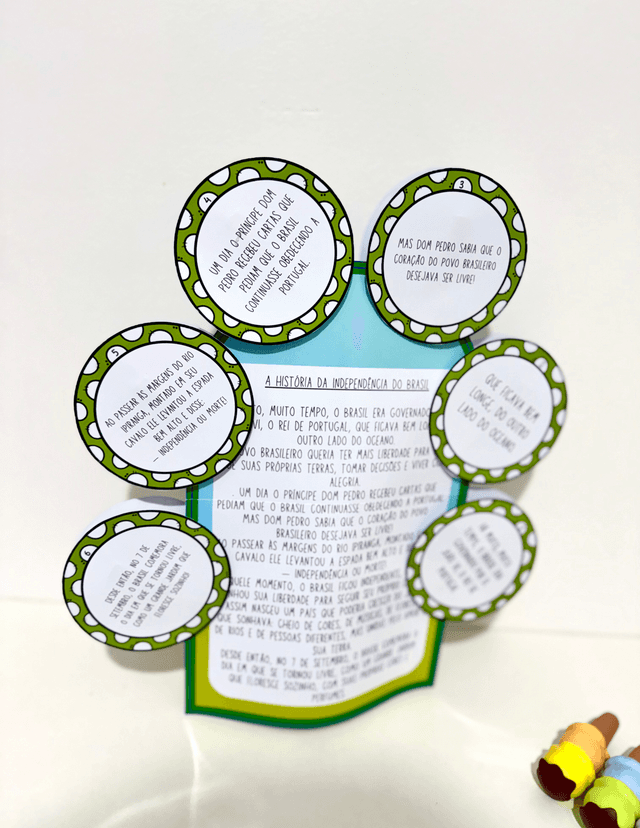 4
UM DIA O PRÍNCIPE DOM
PEDRO RECEBEU CARTAS QUE
PEDIAM QUE O BRASIL
CONTINUASSE OBEDECENDO A
PORTUGAL.
3
MAS DOM PEDRO SABIA QUE O
CORAÇÃO DO POVO BRASILEIRO
DESEJAVA SER LIVRE!
5
AO PASSEAR ÀS MARGENS DO RIO
IPIRANGA, MONTADO EM SEU
CAVALO ELE LEVANTOU A ESPADA
BEM ALTO E DISSE
— INDEPENDÊNCIA OU MORTE!
QUE FICAVA BEM
LONGE, DO OUTRO
LADO DO OCEANO.
6
DESDE ENTÃO, NO 7 DE
SETEMBRO, O BRASIL COMEMORA
O DIA EM QUE SE TORNOU LIVRE,
COMO UM GRANDE JARDIM QUE
FLORESCE SOZINHO
A HISTÓRIA DA INDEPENDÊNCIA DO BRASIL
MUITO TEMPO, O BRASIL ERA GOVERNADO
VI, O REI DE PORTUGAL, QUE FICAVA BEM
OUTRO LADO DO OCEANO.
POVO BRASILEIRO QUERIA TER MAIS LIBERDADE PARA
SUAS PRÓPRIAS TERRAS, TOMAR DECISÕES E VIVER
ALEGRIA.
UM DIA O PRÍNCIPE DOM PEDRO RECEBEU CARTAS QUE
PEDIAM QUE O BRASIL CONTINUASSE OBEDECENDO A PORTUGAL,
MAS DOM PEDRO SABIA QUE O CORAÇÃO DO POVO
BRASILEIRO DESEJAVA SER LIVRE!
PASSEAR ÀS MARGENS DO RIO IPIRANGA, MONTADO
CAVALO ELE LEVANTOU A ESPADA BEM ALTO E
— INDEPENDÊNCIA OU MORTE!
MOMENTO, O BRASIL FICOU INDEPENDENTE
SUA LIBERDADE PARA SEGUIR SEU PRÓPRIO
ASSIM NASCEU UM PAÍS QUE PODERIA
QUE SONHAVA: CHEIO DE CORES, DE MÚSICAS, DE
DE RIOS E DE PESSOAS DIFERENTES, MAS
SUA TERRA.
DESDE ENTÃO, NO 7 DE SETEMBRO, O BRASIL COMEMORA O
DIA EM QUE SE TORNOU LIVRE, COMO UM GRANDE JARDIM
QUE FLORESCE SOZINHO, COM SUAS PRÓPRIAS CORES E
PERFUMES.